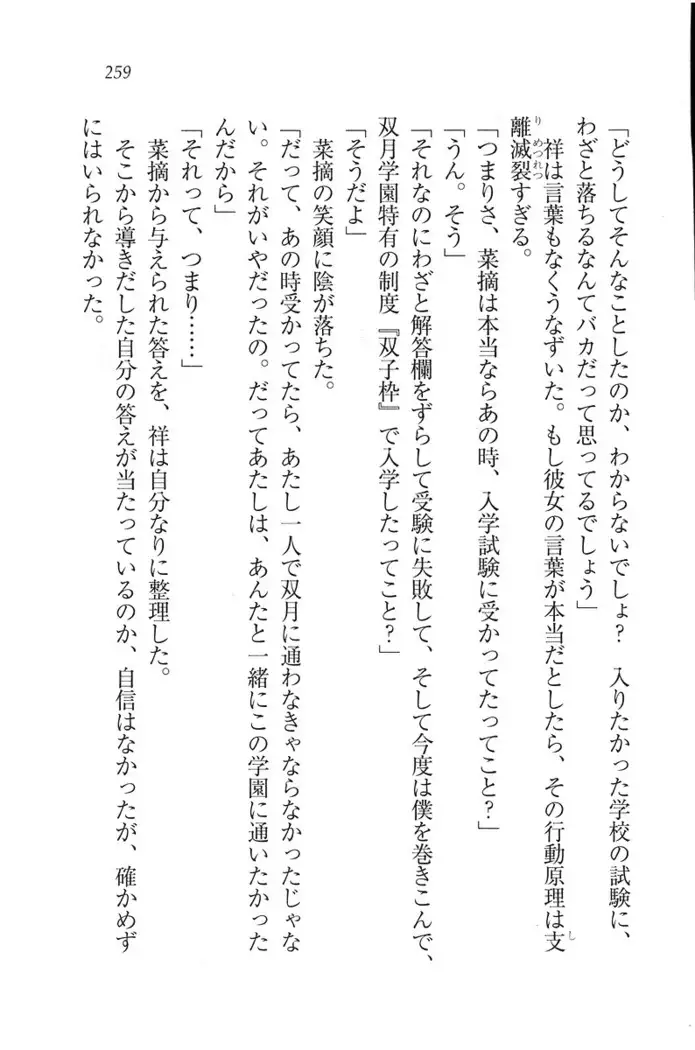 259
「どうしてそんなことしたのか、わからないでしょ？　入りたかった学校の試験に、
わざと落ちるなんてバカだって思ってるでしょう」
　祥は言葉もなくうなずいた。もし彼女の言葉が本当だとしたら、その行動原理は支
離滅裂すぎる。
「つまりさ、菜摘は本当ならあの時、入学試験に受かってたってこと？」
「うん。そう」
「それなのにわざと解答欄をずらして受験に失敗して、そして今度は僕を巻きこんで、
双月学園特有の制度『双子枠』で入学したってこと？」
「そうだよ」
　菜摘の笑顔に陰が落ちた。
「だって、あの時受かってたら、あたし一人で双月に通わなきゃならなかったじゃな
い。それがいやだったの。だってあたしは、あんたと一緒にこの学園に通いたかった
んだから」
「それって、つまり……」
　菜摘から与えられた答えを、祥は自分なりに整理した。
　そこから導きだした自分の答えが当たっているのか、自信はなかったが、確かめず
にはいられなかった。